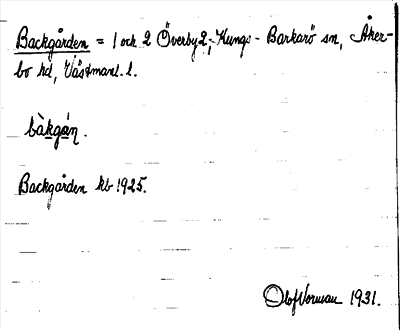 Backgården = 1 och 2 Överby 2, Kungs-Barkarö sn, Åker-
bo hd, Västmanl. l.
bàkgán.
Backgården kb 1925.
Olof Norman 1931.